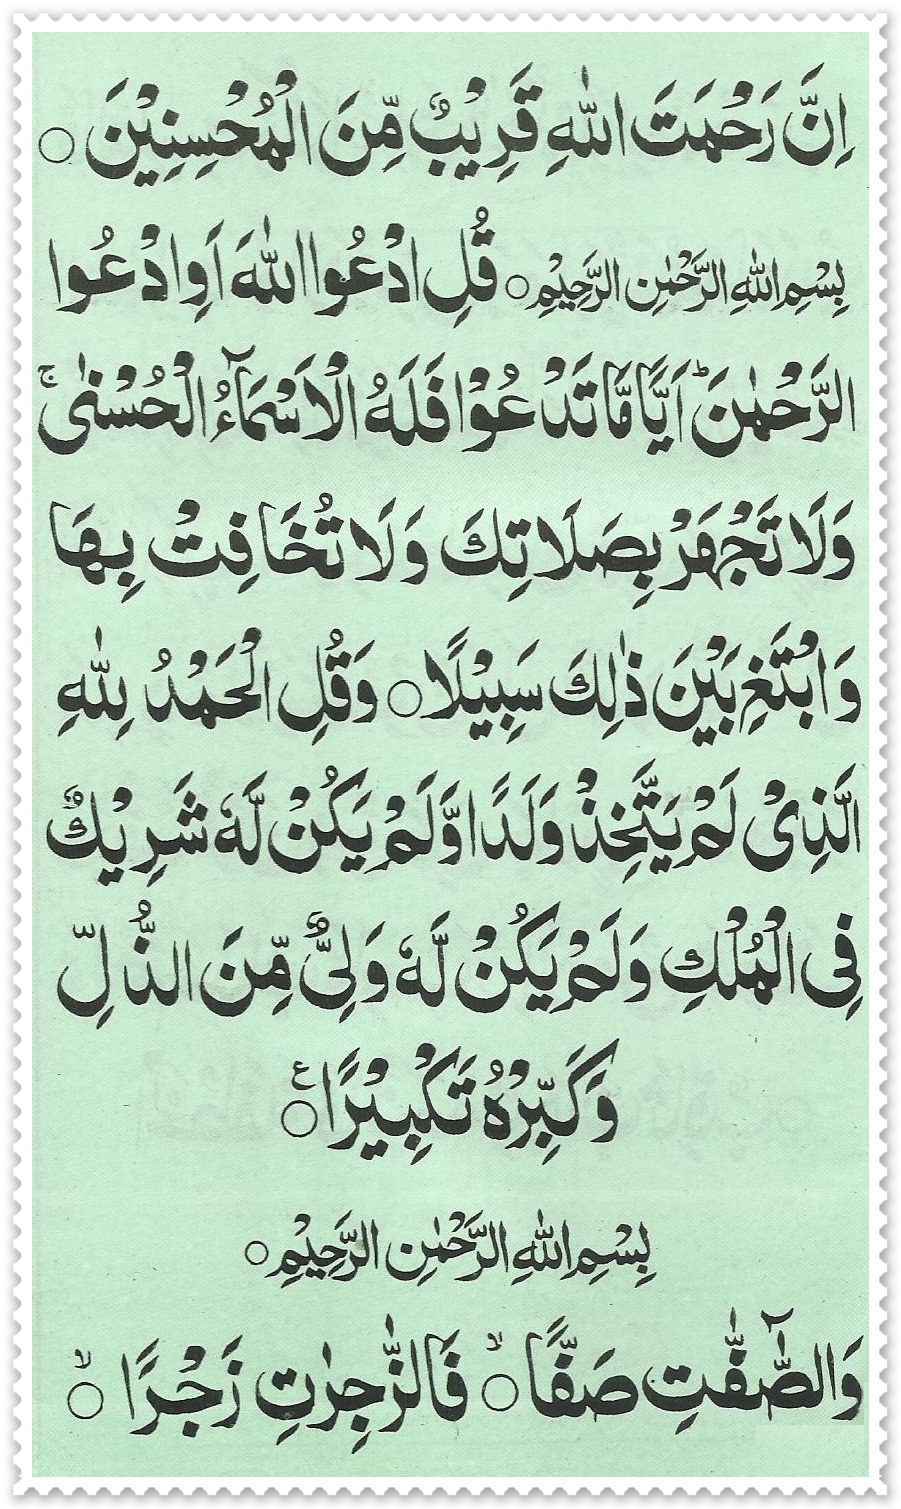 اِنَّ رَحْمَتَ اللّٰهِ قَرِيْبٌ مِّنَ الْمُحْسِنِيْنَ ○
بِسْمِ اللّٰهِ الرَّحْمٰنِ الرَّحِيْمِ ○ قُلِ ادْعُوا اللّٰهَ اَوِ ادْعُوا
الرَّحْمٰنَ ؕ اَيًّا مَّا تَدْعُوْا فَلَهُ الْاَسْمَآءُ الْحُسْنٰى ۚ
وَلَا تَجْهَرْ بِصَلَاتِكَ وَلَا تُخَافِتْ بِهَا
وَابْتَغِ بَيْنَ ذٰلِكَ سَبِيْلًا ○ وَقُلِ الْحَمْدُ لِلّٰهِ
الَّذِىْ لَمْ يَتَّخِذْ وَلَدًا وَّلَمْ يَكُنْ لَّهٗ شَرِيْكٌ
فِى الْمُلْكِ وَلَمْ يَكُنْ لَّهٗ وَلِىٌّ مِّنَ الذُّلِّ
وَكَبِّرْهُ تَكْبِيْرًا ○ ع
بِسْمِ اللّٰهِ الرَّحْمٰنِ الرَّحِيْمِ ○
وَالصّٰٓفّٰتِ صَفًّا ○ ۙ فَالزّٰجِرٰتِ زَجْرًا ○ ۙ